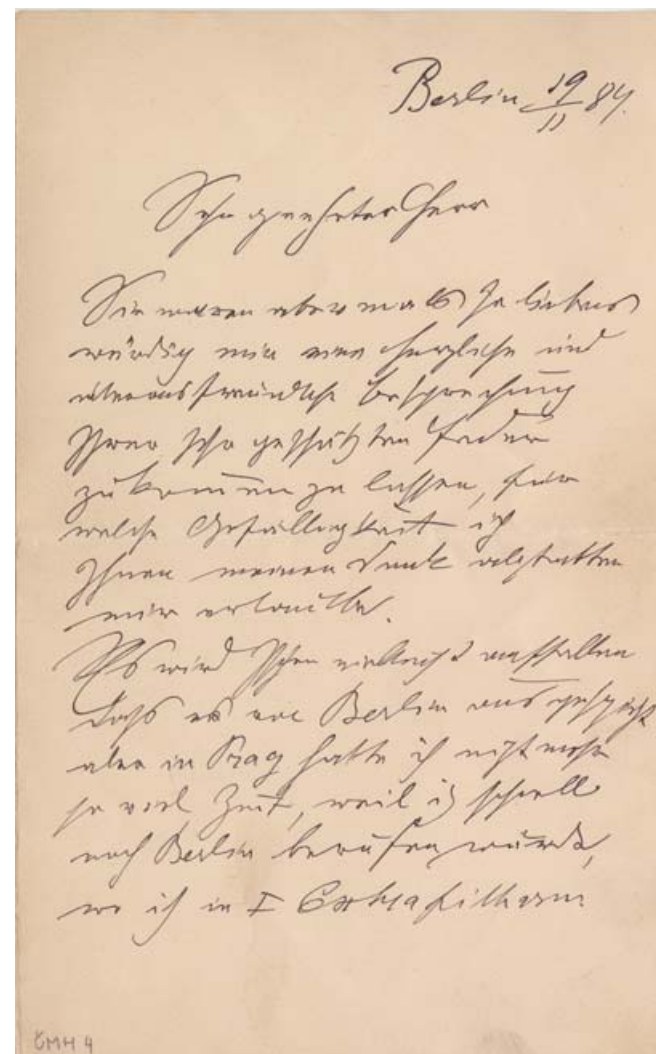 Berlin 19/11 84.
Sehr geehrter Herr
Sie waren abermals so liebens
würdig mir eine herzliche und
überausfreundliche Besprechung
Ihrer sehr geschätzten Feder
zukommen zu lassen, für
welche Gefälligkeit ich
Ihnen meinen Dank abzustatten
mir erlaube.
Es wird Ihnen vielleicht auffallen
dass es von Berlin aus geschieht
aber in Prag hatte ich nicht mehr
so viel Zeit, weil ich schnell
nach Berlin berufen wurde,
wo ich in I
ČMH 4